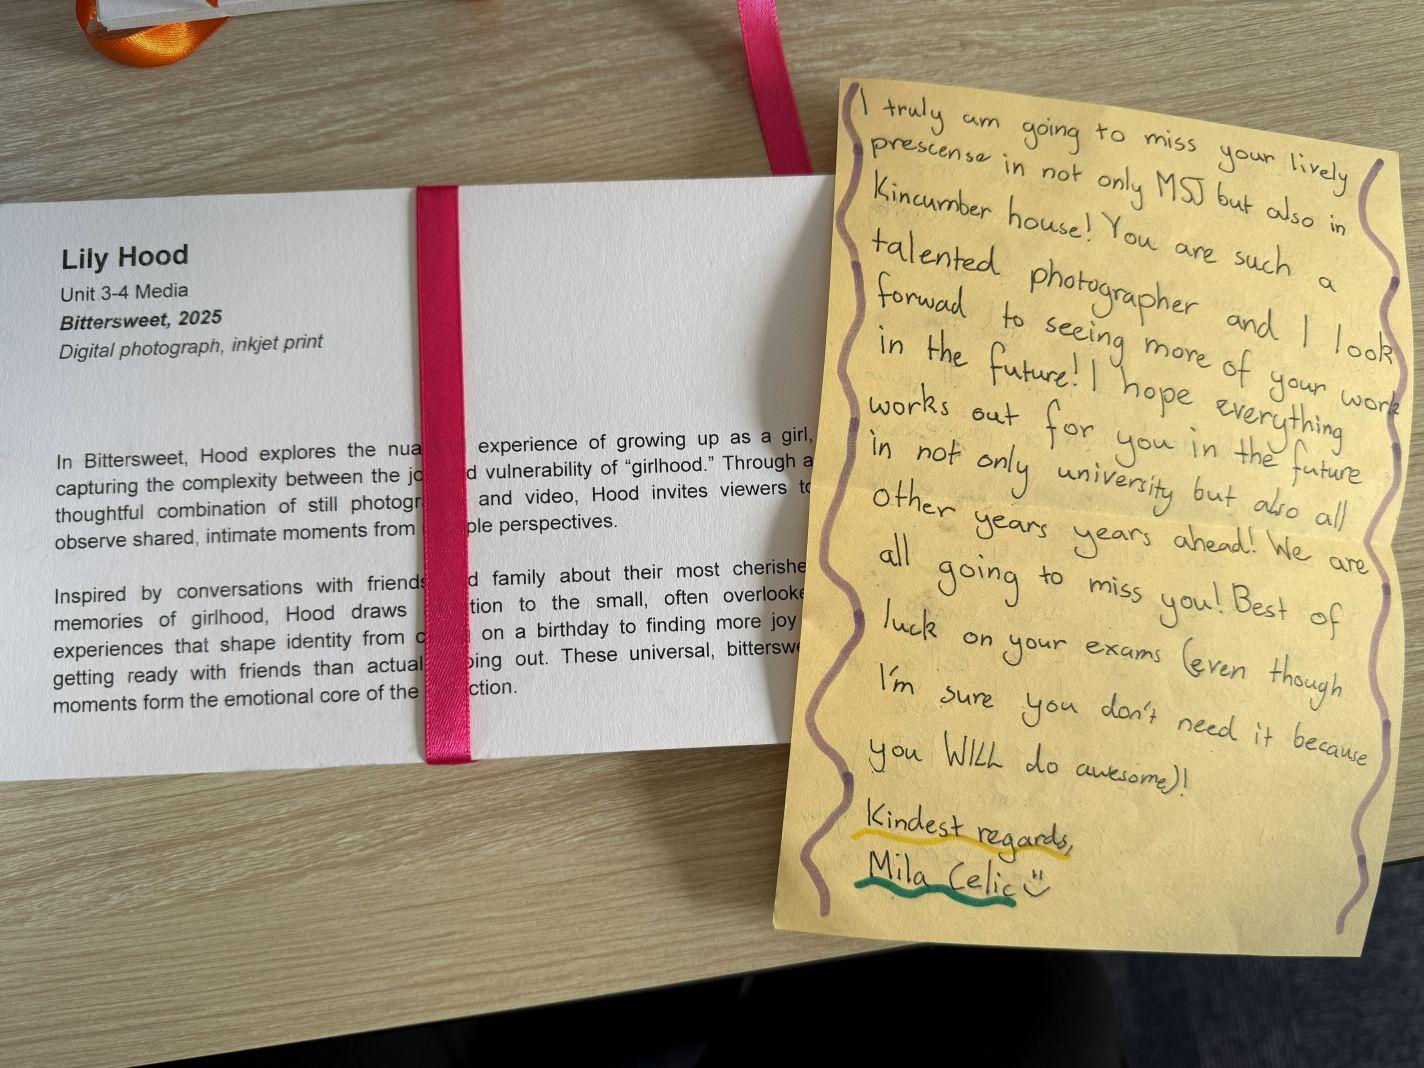 Lily Hood
Unit 3-4 Media
Bittersweet, 2025
Digital photograph, inkjet print
In Bittersweet, Hood explores the nua experience of growing up as a girl,
capturing the complexity between the jo d vulnerability of “girlhood.” Through a
thoughtful combination of still photogr and video, Hood invites viewers to
observe shared, intimate moments from ple perspectives.
Inspired by conversations with friends d family about their most cherishe
memories of girlhood, Hood draws tion to the small, often overlooke
experiences that shape identity from c on a birthday to finding more joy
getting ready with friends than actual ing out. These universal, bitterswe
moments form the emotional core of the ction.
I truly am going to miss your lively
prescense in not only MSJ but also in
Kincumber house! You are such a
talented photographer and I look
forwad to seeing more of your work
in the future! I hope everything
works out for you in the future
in not only university but also all
other years years ahead! We are
all going to miss you! Best of
luck on your exams (even though
I'm sure you don't need it because
you WILL do awesome)!
Kindest regards,
Mila Celic